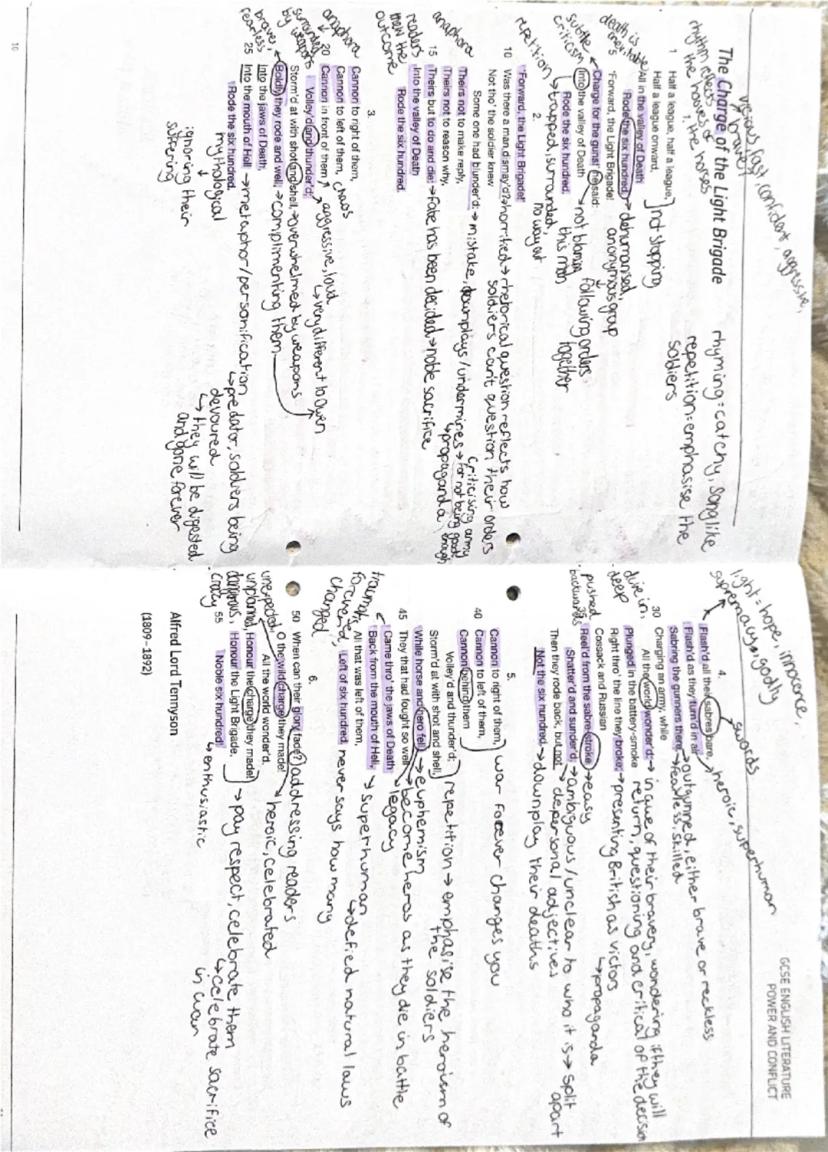 GCSE ENGLISH LITERATURE
POWER AND CONFLICT
vicious, fast, confident, aggressive,
brave
The Charge of the Light Brigade
rhyming = catchy, song like
repetition = emphasise the
soldiers
rhythm reflects
the hooves of
the horses
1.
1 Half a league, half a league,
Half a league onward,
not stopping
All in the valley of Death
death is
inevitable
Rode the six hundred.
→ dehumanised,
anonymous group
5 'Forward, the Light Brigade!
Charge for the guns!' he said:
→ not blaming
this man,
following orders
together
subtle
criticism
Into the valley of Death
Rode the six hundred.
repetition → trapped, surrounded,
no way out
2.
'Forward, the Light Brigade!'
10 Was there a man dismay'd?
→ horrified → rhetorical question reflects how
soldiers can't question their orders
Not tho' the soldier knew
Some one had blunder'd:
→ mistake, downplays/undermines
→ propaganda
criticising army
for not being good
enough
Theirs not to make reply,
anaphora
Theirs not to reason why,
15 Theirs but to do and die:
→ Fate has been decided → noble sacrifice
Into the valley of Death
Rode the six hundred.
readers
knew the
outcome
3.
Cannon to right of them,
Cannon to left of them,
20 Cannon in front of them
chaos
anaphora
surrounded
by weapons
Volley'd and thunder'd;
→ aggressive, loud
→ very different to Owen
Storm'd at with shot and shell,
→ overwhelmed by weapons
Boldly they rode and well,
→ complimenting them
brave,
fearless
Into the jaws of Death,
25 Into the mouth of Hell
→ metaphor/personification
→ predator, soldiers being
devoured
→ they will be digested
and gone forever
mythological
Rode the six hundred.
ignoring their
suffering
10
light = hope, innocence,
supremacy, godly
4.
Flash'd all their sabres bare,
swords
heroic, superhuman
Flash'd as they turn'd in air
→ outgunned, either brave or reckless
Sabring the gunners there,
→ fearless, skilled
30 Charging an army, while
All the world wonder'd:
→ in awe of their bravery, wondering if they will
return, questioning and critical of the decision
dive in,
deep
Plunged in the battery-smoke
Right thro' the line they broke;
→ presenting British as victors
→ propaganda
Cossack and Russian
35 Reel'd from the sabre-stroke
→ easy
pushed
backwards
Shatter'd and sunder'd.
→ ambiguous/unclear to who it is → split
apart
Then they rode back, but not
→ depersonal adjectives
Not the six hundred.
→ downplay their deaths
5.
Cannon to right of them,
40 Cannon to left of them,
Cannon behind them
war forever changes you
Volley'd and thunder'd;
Storm'd at with shot and shell,
repetition → emphasise the heroism of
the soldiers
While horse and hero fell,
→ euphemism
45 They that had fought so well
→ become heros as they die in battle
→ legacy
Came thro' the jaws of Death
Back from the mouth of Hell,
→ superhuman
→ defied natural laws
All that was left of them,
Left of six hundred.
never says how many
trauma,
forever
changed
6.
50 When can their glory fade?
addressing readers
O the wild charge they made!
→ heroic, celebrated
All the world wonder'd.
unexpected,
unplanned,
dangerous,
crazy
Honour the charge they made!
Honour the Light Brigade,
→ pay respect, celebrate them
→ celebrate sacrifice
in war
55 Noble six hundred!
→ enthusiastic
Alfred Lord Tennyson
(1809–1892)